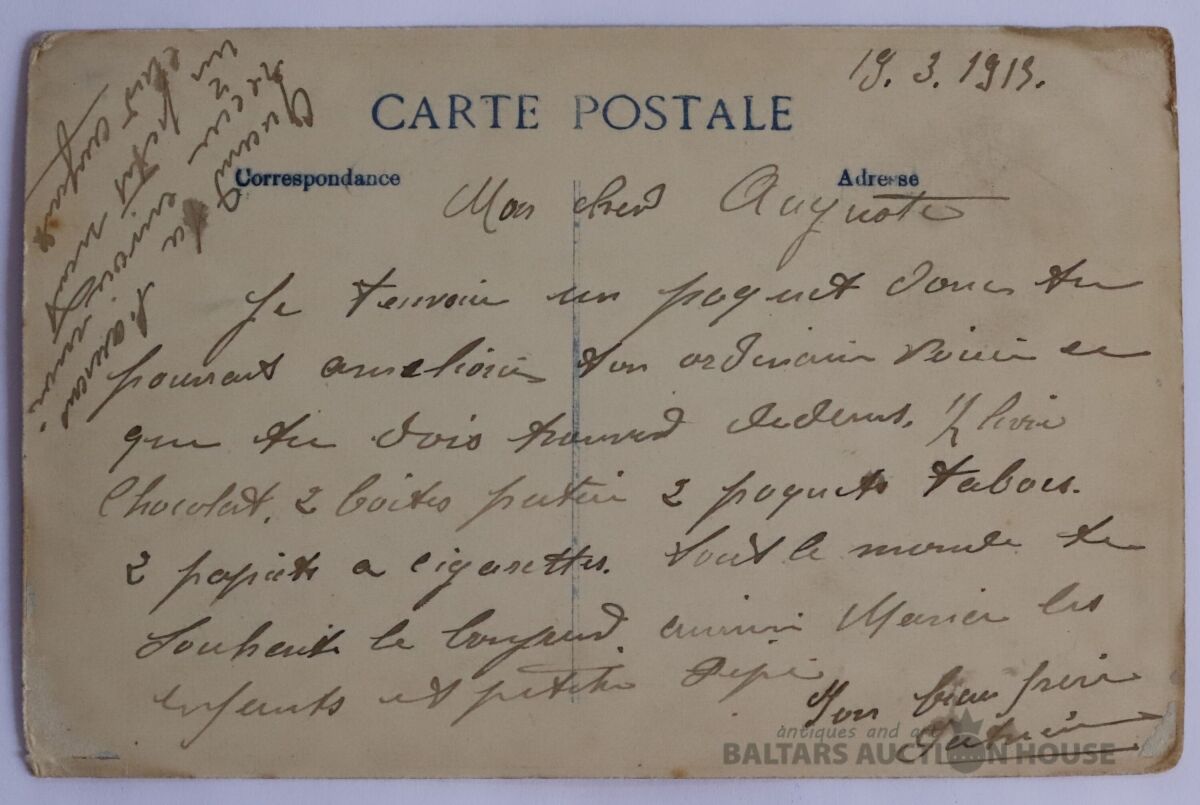 19.3.1919.
CARTE POSTALE
Correspondance
Adresse
Mon cher Auguste
Je tenvoie un paquet donc tu
pourras ameliorer ton ordinaire Voici ce
que tu dois trouver dedens. 1/2 livre
Chocolat. 2 boites 2 paquets tabacs.
2 papiets a cigarettes. Tout le monde te
Souhaite le bonjour Marie les
enfants et petite Pepé
Ton beau frère
Quand tu auras
reçu
un petit mot
antiques and art
BALTARS AUCTION HOUSE